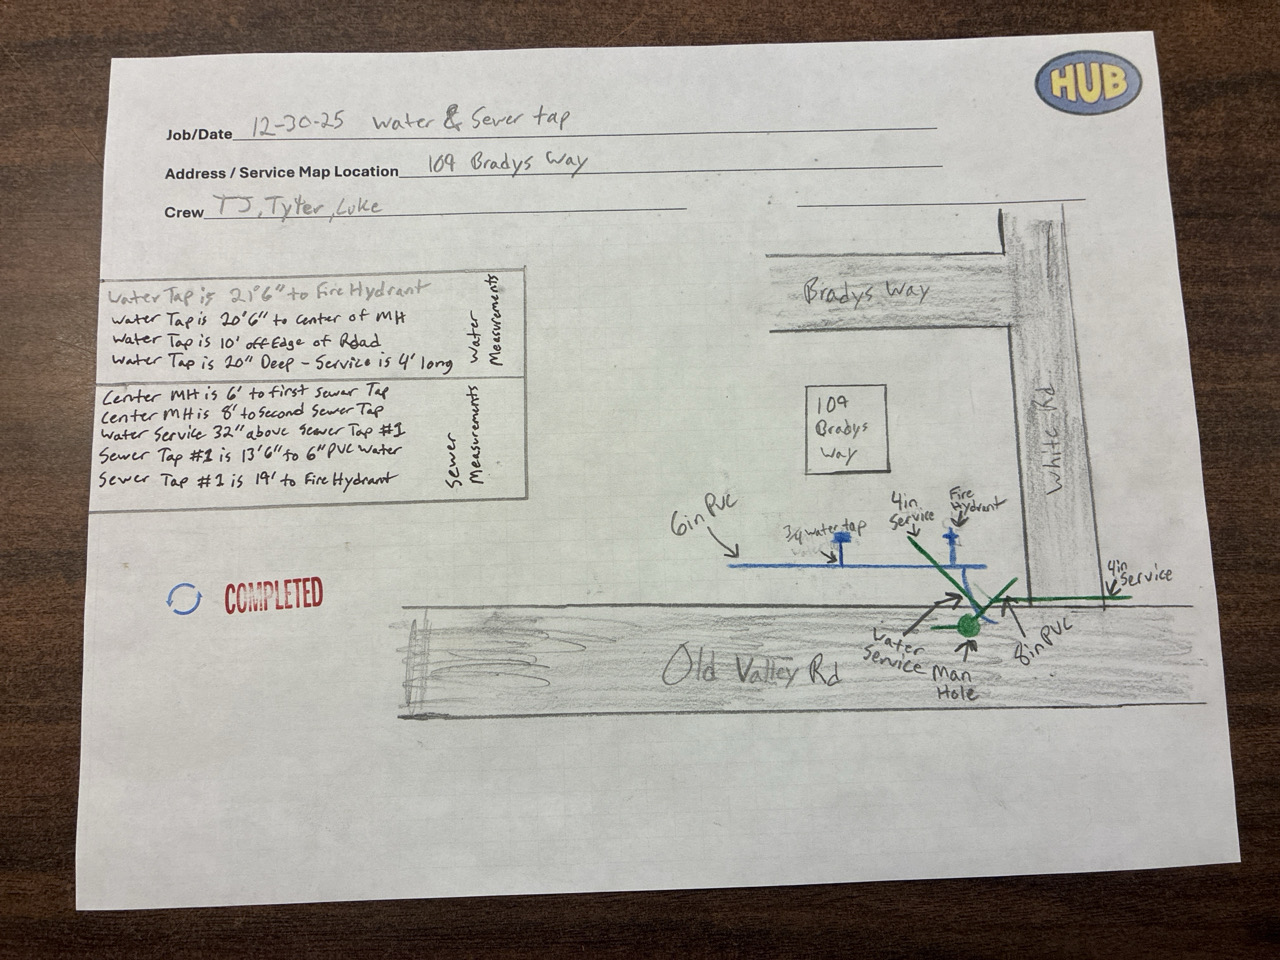 HUB
Job/Date 12-30-25 Water & Sewer tap
Address / Service Map Location 109 Bradys Way
Crew TJ, Tyler, Luke
Water Tap is 21'6" to Fire Hydrant
Water Tap is 20'6" to Center of MH
Water Tap is 10' off Edge of Road
Water Tap is 20" Deep - Service is 4' long
Water
Measurements
Center MH is 6' to first Sewer Tap
Center MH is 8' to Second Sewer Tap
Water Service 32" above Sewer Tap #1
Sewer Tap #1 is 13'6" to 6" PVC Water
Sewer Tap #1 is 19' to Fire Hydrant
Sewer
Measurements
Bradys Way
White Rd
109
Bradys
Way
6in PVC
3/4 water tap
4in
Service
Fire
Hydrant
4in
Service
COMPLETED
Water
Service
Man
Hole
8in PVC
Old Valley Rd